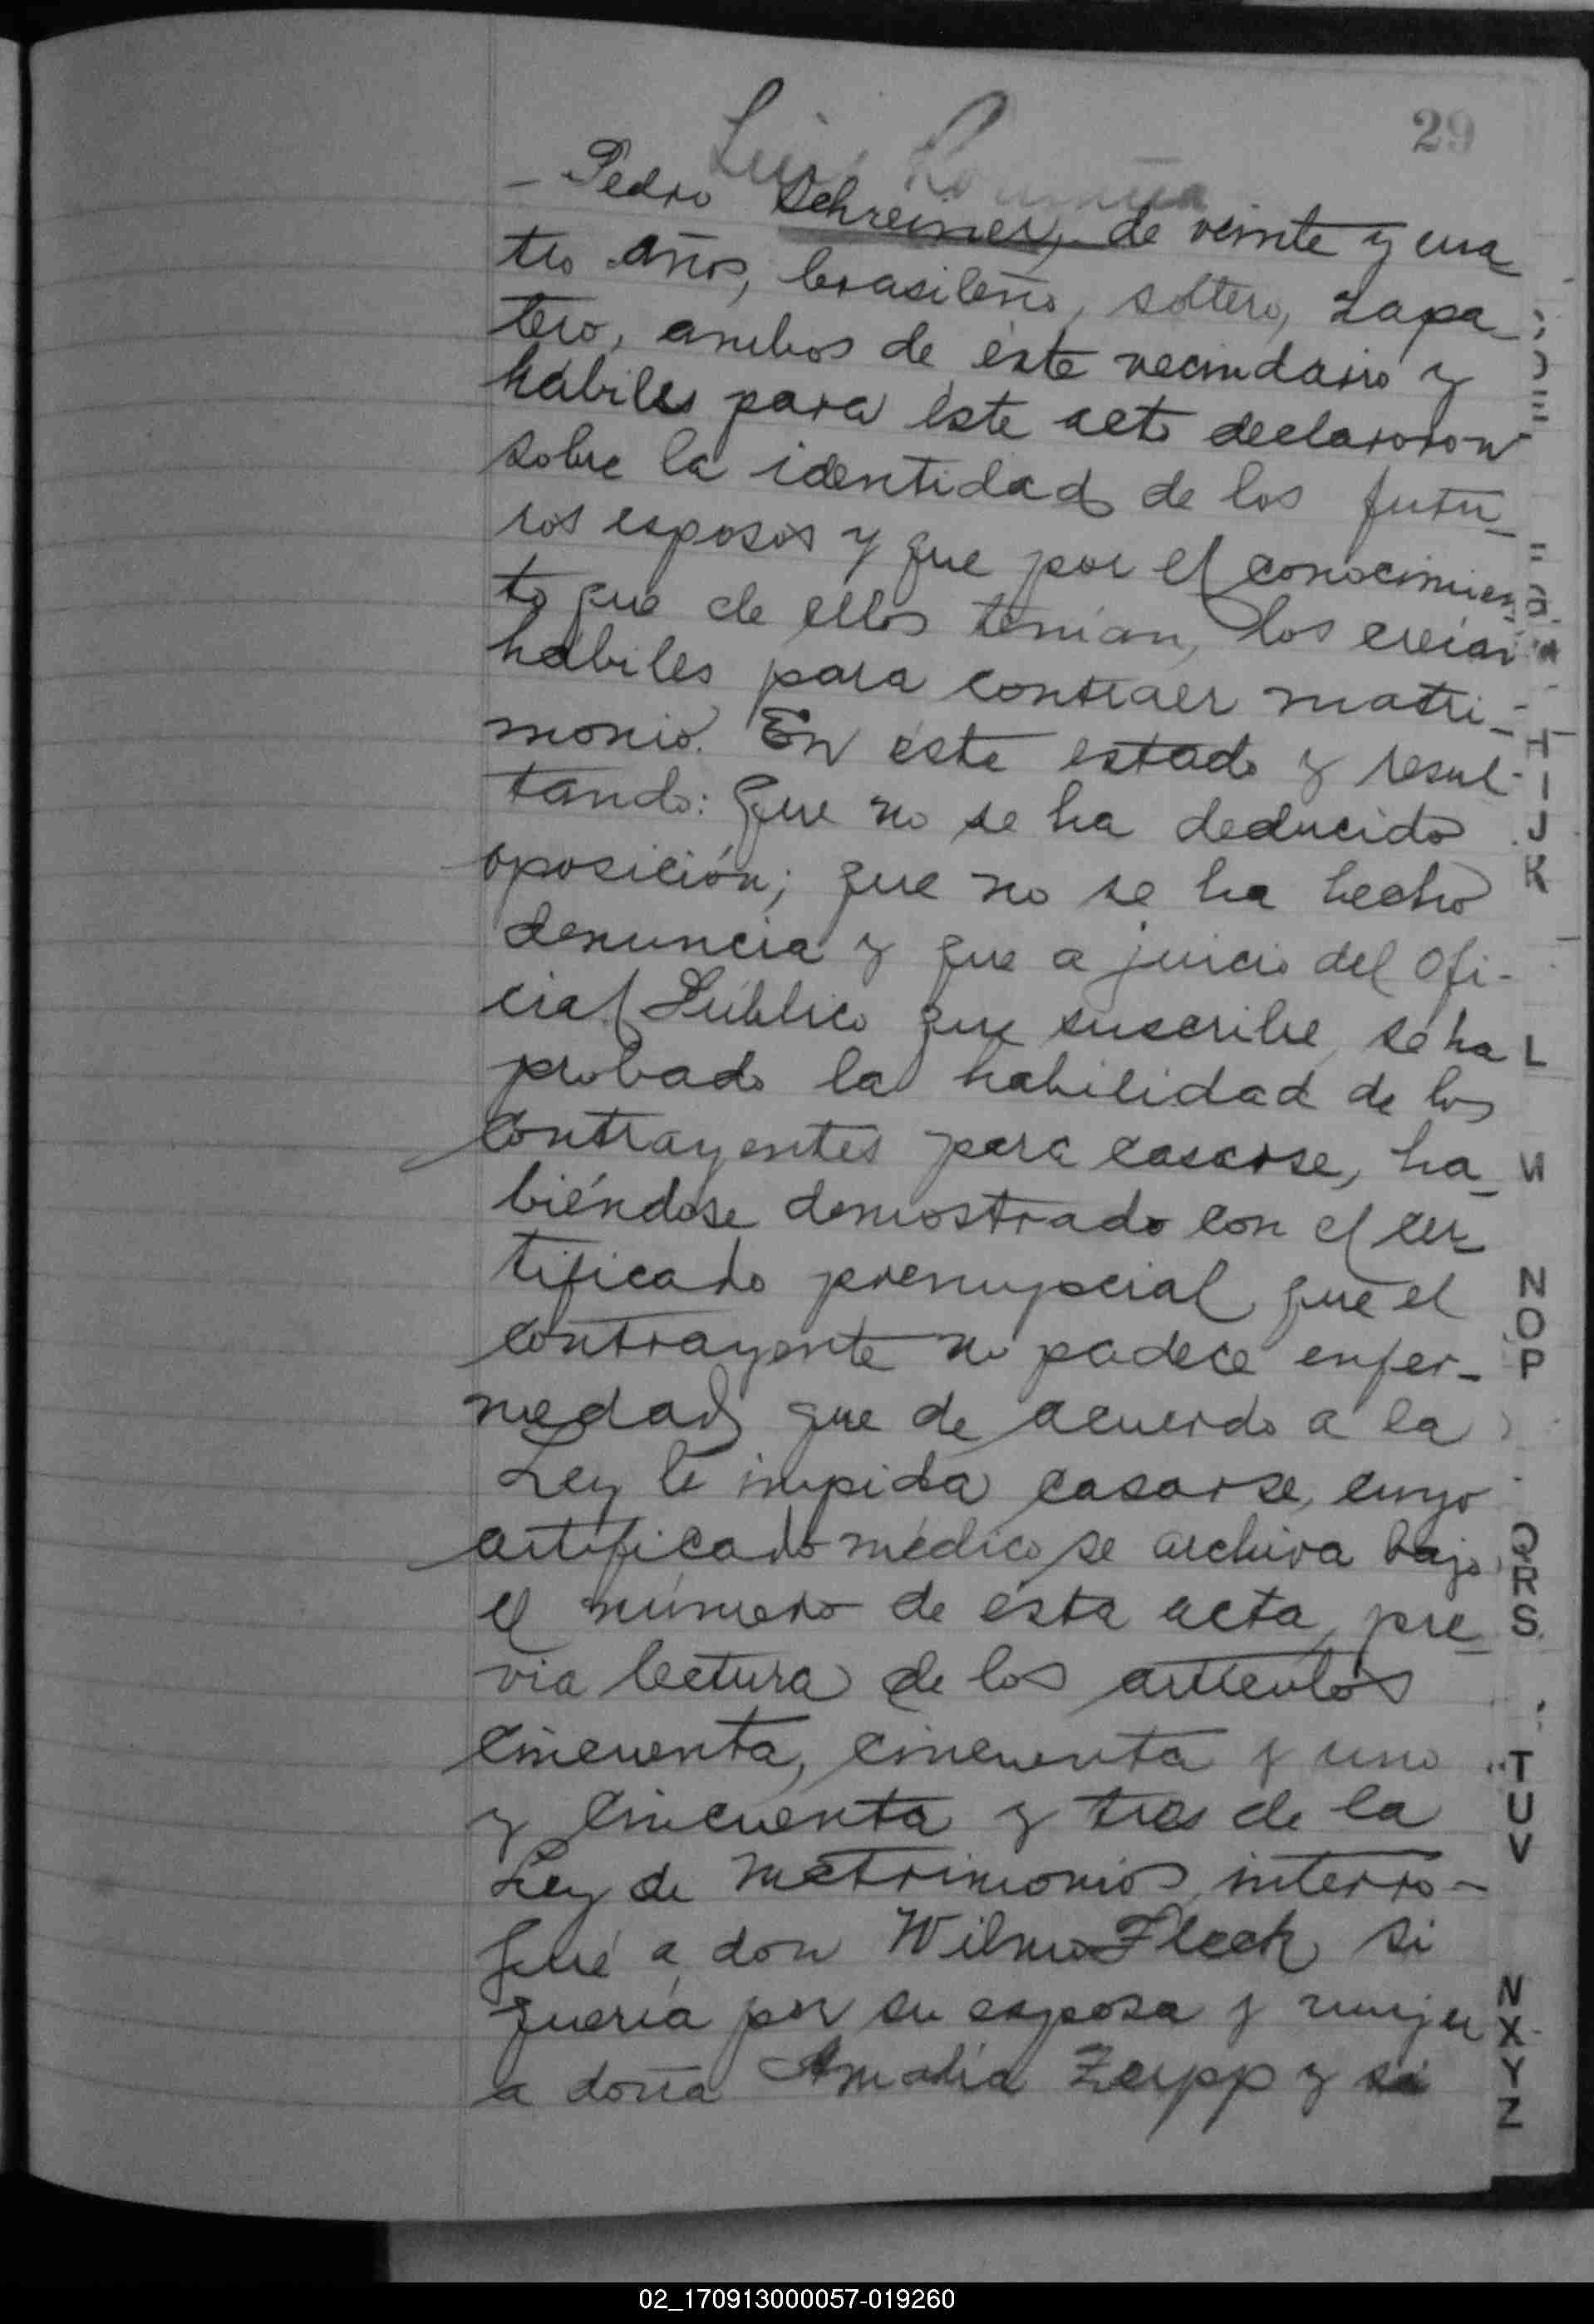 29
Luis
- Pedro Schreiner, de veinte y cua
tro años, brasileño, soltero, zapa_
tero, ambos de éste vecindario y
hábiles para éste acto declararon
sobre la identidad de los futu_
ros esposos y que por el conocimien
to que de ellos tenían, los creían
hábiles para contraer matri_
monio. En éste estado y resul-
tando: Que no se ha deducido
oposición; que no se ha hecho
denuncia y que a juicio del Ofi-
cial Público que suscribe, se ha
probado la habilidad de los
contrayentes para casarse, ha_
biéndose demostrado con el cer_
tificado prenupcial que el
contrayente no padece enfer_
medad que de acuerdo a la
Ley le impida casarse, cuyo
certificado médico se archiva bajo
el número de ésta acta, pre_
via lectura de los artículos
cincuenta, cincuenta y uno
y cincuenta y tres de la
Ley de Matrimonios, interro-
gué a don Wilmo Fleck si
quería por su esposa y mujer
a doña Amalia Zupp y si
H
I
J
K
L
N
O
P
Q
R
S
T
U
V
X
Y
Z
02_170913000057-019260